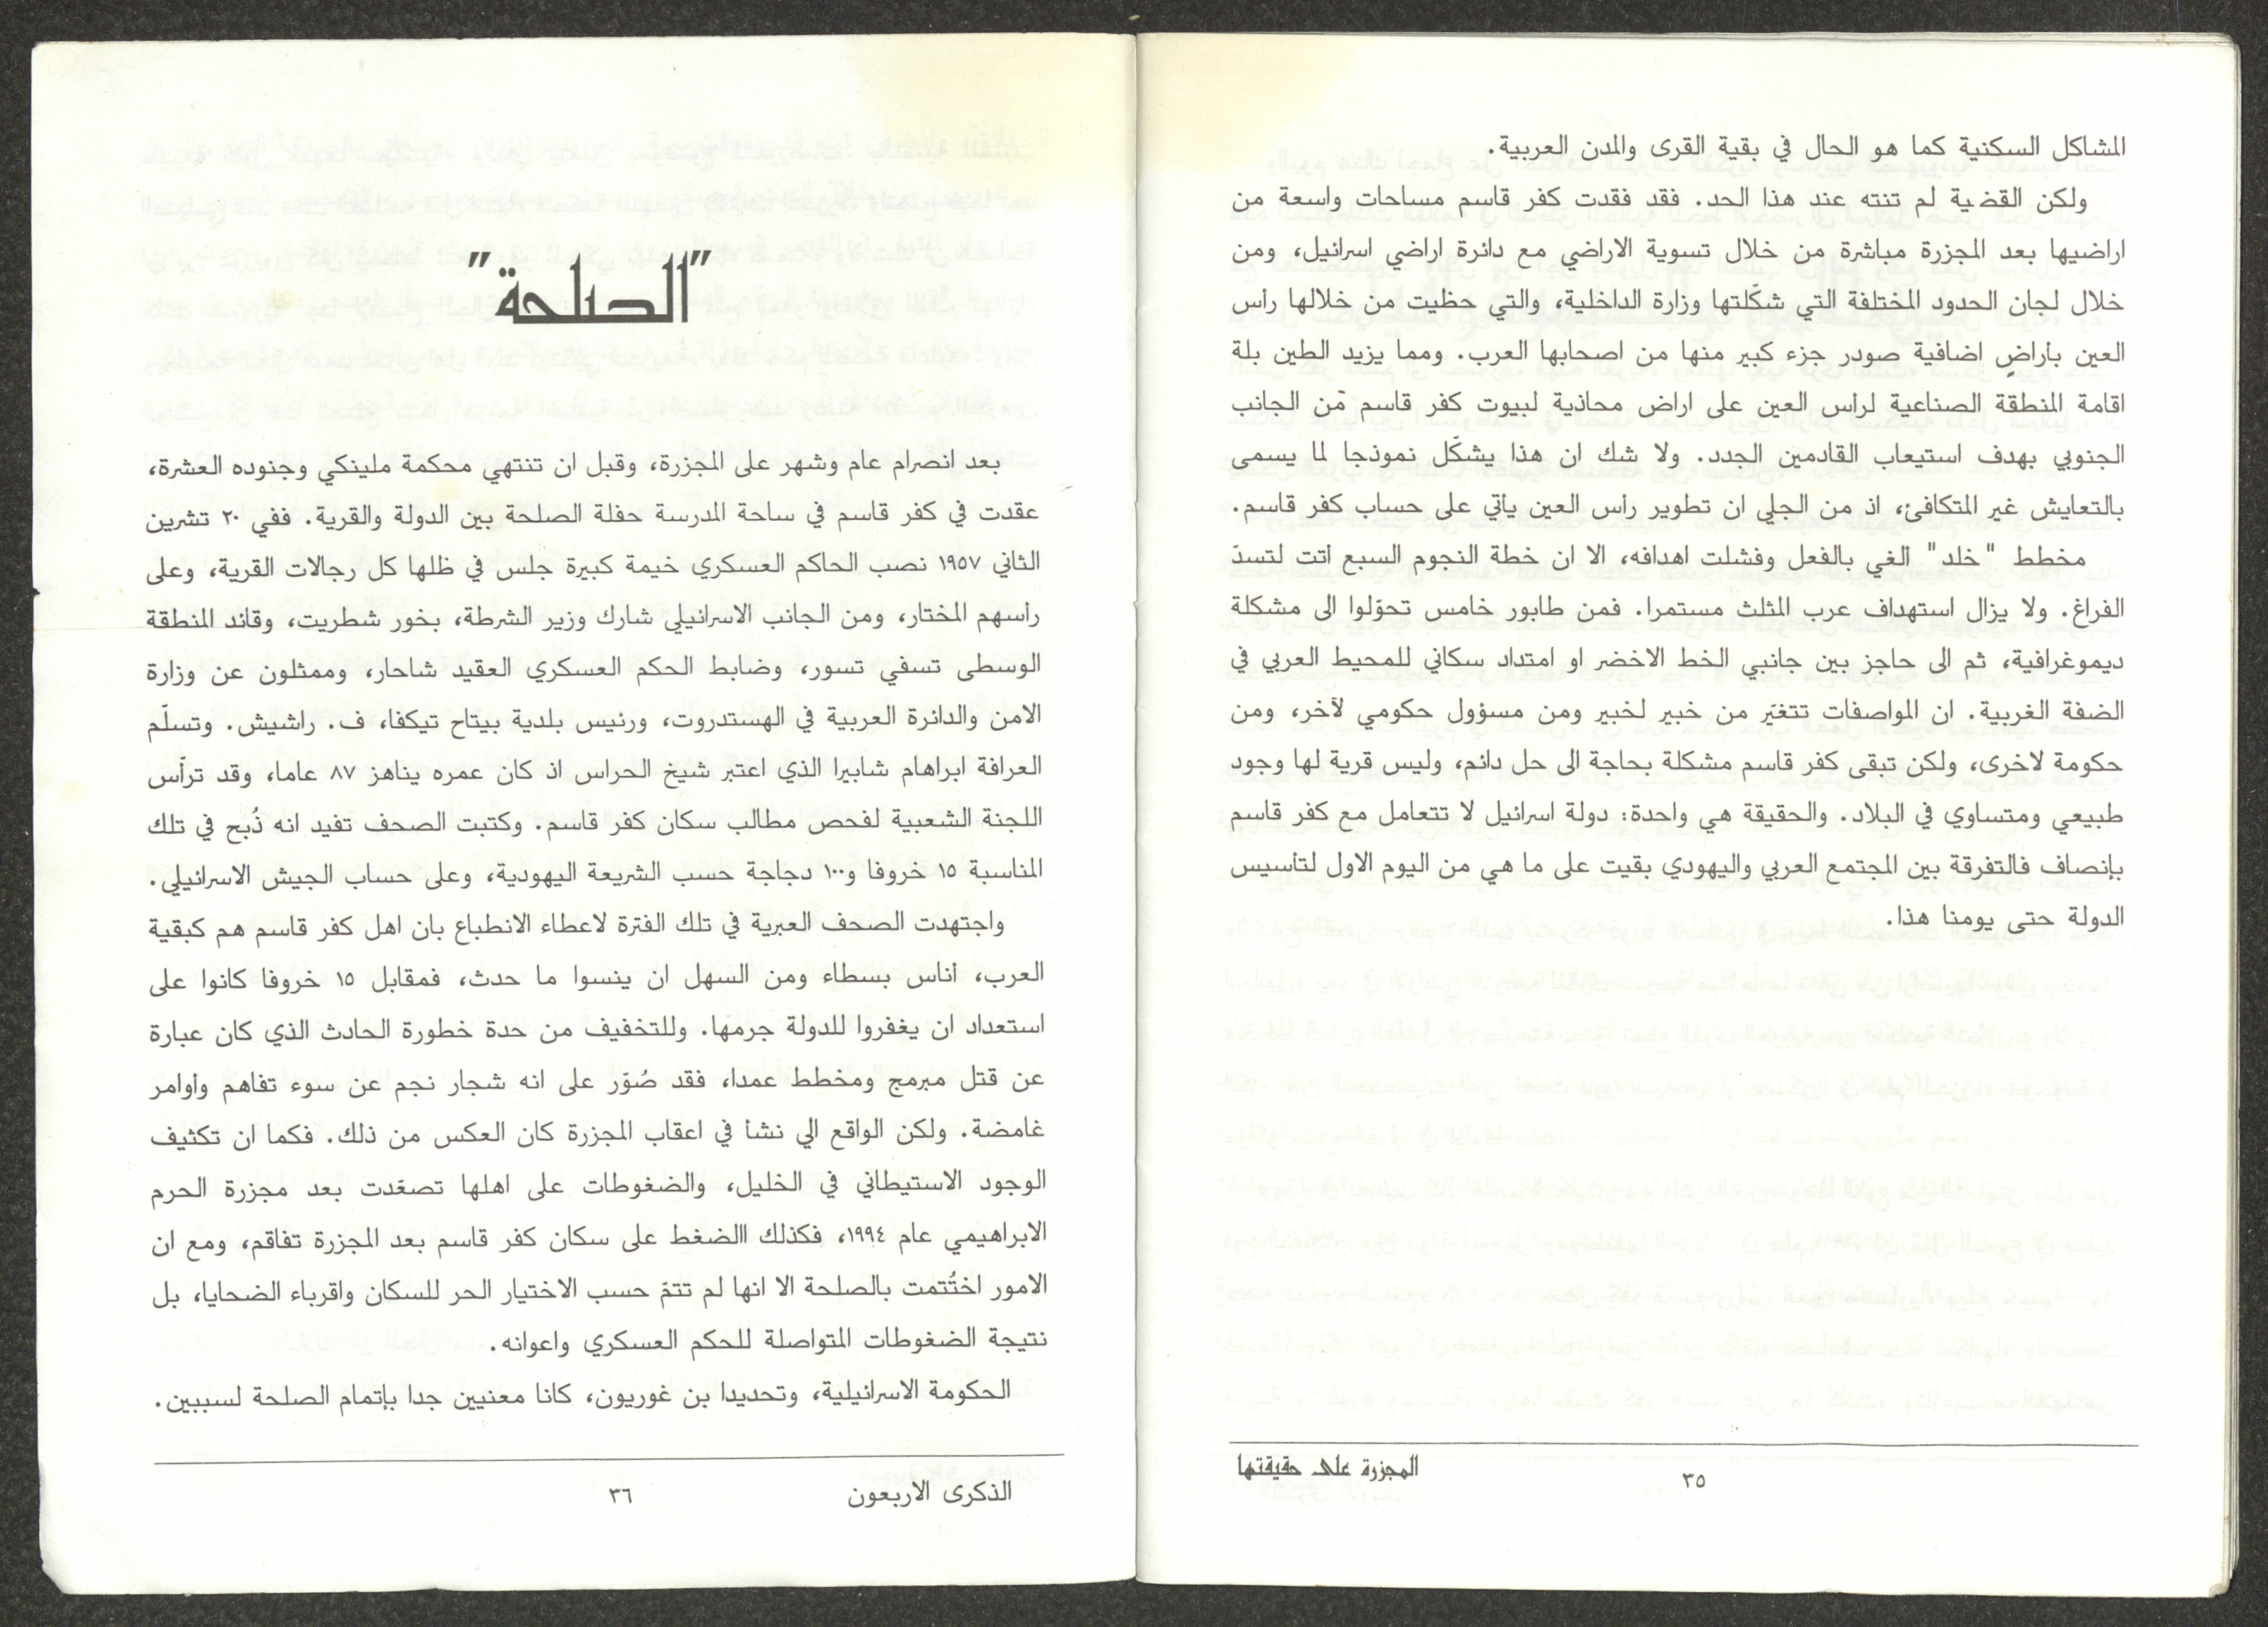 المشاكل السكنية كما هو الحال في بقية القرى والمدن العربية.
ولكن القضية لم تنته عند هذا الحد. فقد فقدت كفر قاسم مساحات واسعة من
اراضيها بعد المجزرة مباشرة من خلال تسوية الاراضي مع دائرة اراضي اسرائيل، ومن
خلال لجان الحدود المختلفة التي شكّلتها وزارة الداخلية، والتي حظيت من خلالها رأس
العين بأراضٍ اضافية صودر جزء كبير منها من اصحابها العرب. ومما يزيد الطين بلة
اقامة المنطقة الصناعية لرأس العين على اراض محاذية لبيوت كفر قاسم من الجانب
الجنوبي بهدف استيعاب القادمين الجدد. ولا شك ان هذا يشكّل نموذجا لما يسمى
بالتعايش غير المتكافئ، اذ من الجلي ان تطوير رأس العين يأتي على حساب كفر قاسم.
مخطط "خلد" ألغي بالفعل وفشلت اهدافه، الا ان خطة النجوم السبع أتت لتسدّ
الفراغ. ولا يزال استهداف عرب المثلث مستمرا. فمن طابور خامس تحوّلوا الى مشكلة
ديموغرافية، ثم الى حاجز بين جانبي الخط الاخضر او امتداد سكاني للمحيط العربي في
الضفة الغربية. ان المواصفات تتغيّر من خبير لخبير ومن مسؤول حكومي لآخر، ومن
حكومة لاخرى، ولكن تبقى كفر قاسم مشكلة بحاجة الى حل دائم، وليس قرية لها وجود
طبيعي ومتساوي في البلاد. والحقيقة هي واحدة: دولة اسرائيل لا تتعامل مع كفر قاسم
بإنصاف فالتفرقة بين المجتمع العربي واليهودي بقيت على ما هي من اليوم الاول لتأسيس
الدولة حتى يومنا هذا.
المجزرة على حقيقتها
٣٥
"الصلحة"
بعد انصرام عام وشهر على المجزرة، وقبل ان تنتهي محكمة ملينكي وجنوده العشرة،
عقدت في كفر قاسم في ساحة المدرسة حفلة الصلحة بين الدولة والقرية. ففي ٢٠ تشرين
الثاني ١٩٥٧ نصب الحاكم العسكري خيمة كبيرة جلس في ظلها كل رجالات القرية، وعلى
رأسهم المختار، ومن الجانب الاسرائيلي شارك وزير الشرطة، بخور شطريت، وقائد المنطقة
الوسطى تسفي تسور، وضابط الحكم العسكري العقيد شاحار، وممثلون عن وزارة
الامن والدائرة العربية في الهستدروت، ورئيس بلدية بيتاح تيكفا، ف. راشيش. وتسلّم
العرافة ابراهام شابيرا الذي اعتبر شيخ الحراس اذ كان عمره يناهز ٨٧ عاما، وقد ترأّس
اللجنة الشعبية لفحص مطالب سكان كفر قاسم. وكتبت الصحف تفيد انه ذُبح في تلك
المناسبة ١٥ خروفا و١٠٠ دجاجة حسب الشريعة اليهودية، وعلى حساب الجيش الاسرائيلي.
واجتهدت الصحف العبرية في تلك الفترة لاعطاء الانطباع بان اهل كفر قاسم هم كبقية
العرب، أناس بسطاء ومن السهل ان ينسوا ما حدث، فمقابل ١٥ خروفا كانوا على
استعداد ان يغفروا للدولة جرمها. وللتخفيف من حدة خطورة الحادث الذي كان عبارة
عن قتل مبرمج ومخطط عمدا، فقد صُوّر على انه شجار نجم عن سوء تفاهم وأوامر
غامضة. ولكن الواقع الي نشأ في اعقاب المجزرة كان العكس من ذلك. فكما ان تكثيف
الوجود الاستيطاني في الخليل، والضغوطات على اهلها تصعّدت بعد مجزرة الحرم
الابراهيمي عام ١٩٩٤، فكذلك االضغط على سكان كفر قاسم بعد المجزرة تفاقم، ومع ان
الامور اختُتمت بالصلحة الا انها لم تتمّ حسب الاختيار الحر للسكان واقرباء الضحايا، بل
نتيجة الضغوطات المتواصلة للحكم العسكري واعوانه.
الحكومة الاسرائيلية، وتحديدا بن غوريون، كانا معنيين جدا بإتمام الصلحة لسببين.
الذكرى الاربعون
٣٦